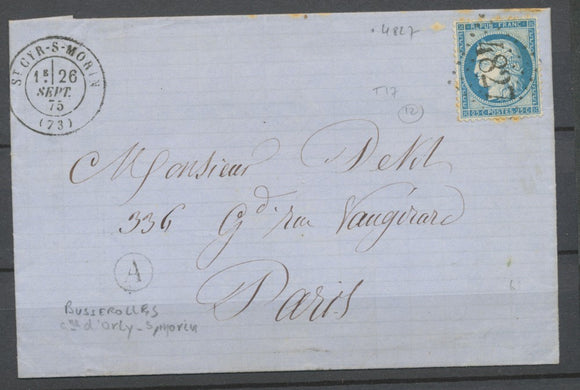 .4827
ST CYR-S-MORIN
1E 26
SEPT.
75
(73)
REPUB. FRANC.
25 C. POSTES 25 C.
4827
T17
12
Monsieur
336 Gd rue Vaugirard
A
Paris
BUSSEROLLES
cne d'Orly-s/morin